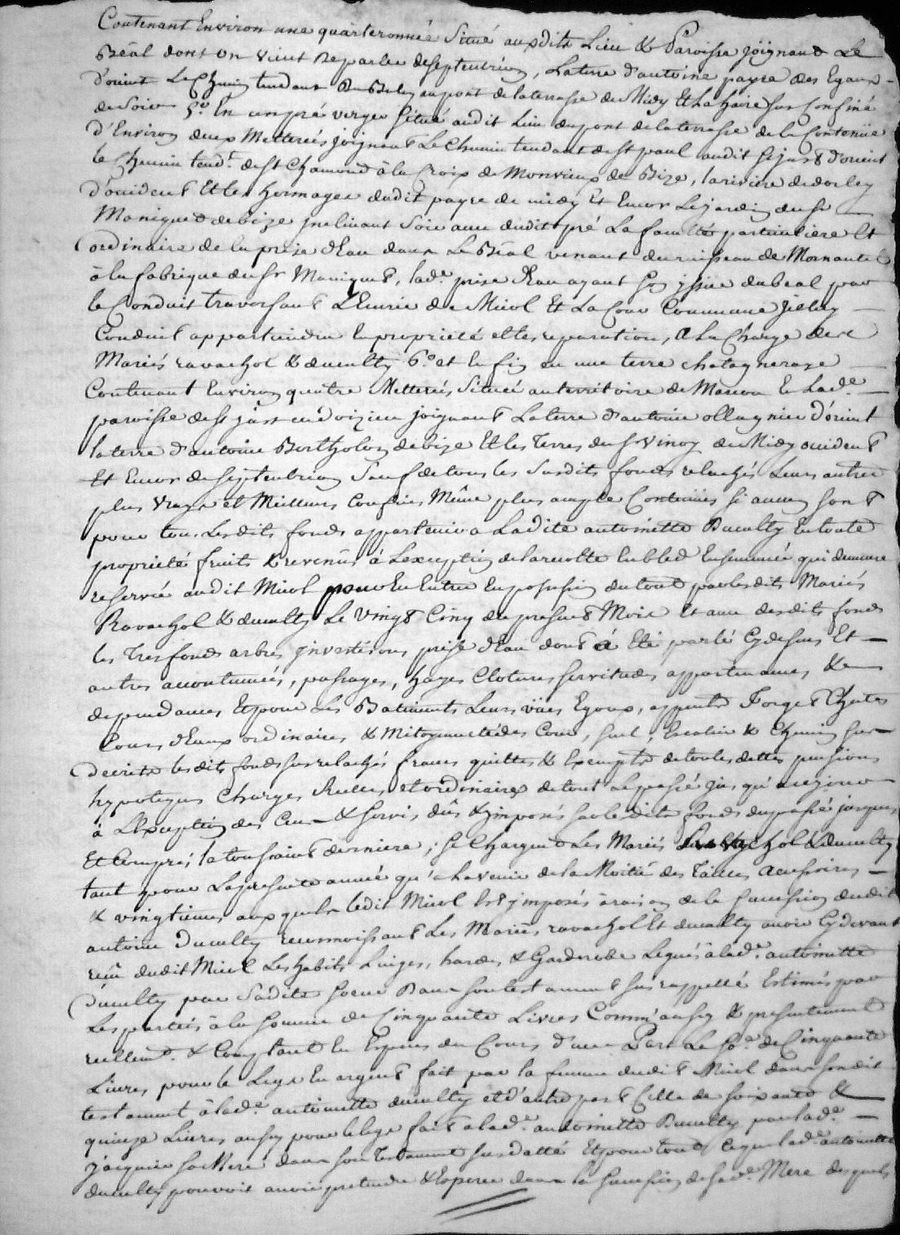 Contenant Environ une quarteronnée Situé auxdits Lieu & Paroisse joignant Le
Béal dont on vient de parler de septentrion, La terre d'antoine payre des Egaux
D'orient Le Chemin tendant du au pont de la terrasse du Midy Et La haire sus Confiné
de Soir 5.º En un pré verger Situé audit Lieu du pont de la terrasse de la Contenue
d'Environ deux Metterées joignant Le Chemin tendant de st paul audit st just d'orient
le Chemin tend.t de st Chamond à la Croix de Monvieux de Bize, la riviere de dorley
d'occident Et les hermages dudit payre de midy Et Encor Le jardin du sr
Maniquet de bize inclinant Soir avec dudit pré La faculté particuliere Et
ordinaire de la prise d'Eau dans Le Béal venant du ruisseau de Mornantel
à la fabrique du sr Maniquet, lad.e prise d'Eau ayant son issüe du béal par
le Conduit traversant L'Ecurie de Micol Et La Cour Commune
Conduit appartiendra En propriété et les reparations, à La Charge des d.
Mariés ravachol & ducultty 6.º et la fin en une terre chatagneraye
Contenant Environ quatre Metterées, Situéé au territoire de En Lad.e
paroisse de st just en doizieu joignant La terre d'antoine ollagnier d'orient
la terre d'antoine Bertholon de bize Et les Terres du sr Vinoy du Midy occident
Et Encor de septentrion Sauf de tous les Susdits fonds relachés Leurs autres
plus vrays et Meilleurs Confins Même plus ample Contenues si aucun sont
pour tous lesdits fonds appartenir à Ladite antoinette Ducultty En toute
propriété fruits & revenus à L'exception de la recolte En bled Ensemencée qui demeure
reservée audit Micol pour En Entrer En possession du tout par lesdits Mariés
Ravachol & ducultty Le vingt Cinq du present Mois Et avec desdits fonds
les Tresfonds arbres y investisons prise d'Eau dont à Eté parlé Cy dessus Et
autres accoutumées, passages, hayes Clotures servitudes appartenances &
dependances Et pour Les Batiments Leurs vües Egoux, Forget Chutes
Cours d'Eaux ordinaires & Mitoyenneté des Cour, Escalier & Chemin sus
decrits lesdits fonds sus relachés francs quittes & Exempts de toutes dettes pensions
hypoteques Charges Reelles et ordinaires de tout Le passé jus qu'à ce jour
à L'Exception des Cens & servis dûs & imposés sur lesdits fonds du passé jusques
Et Compris la toussaint derniere; se Chargent Les Mariés Ravachol & ducultty
tant pour La presente année qu'à L'avenir de la Moitié des Tailles accessoires
& vingtiemes aux quels ledit Micol Est imposés à raison de la succession dudit
antoine Ducultty reconnoissant Les Mariés ravachol Et ducultty avoir Cy devant
reçu dudit Micol Les habits Linges, hardes, & Garderobe Legués à lad.e antoinette
Ducultty par Sadite soeur Dans son testament sus rappellé Estimés par
Les parties à la somme de Cinquante Livres Comm'aussy & presentement
reellem.t & Comptant En Especes du Cours d'une Part La So.e de Cinquante
Livres pour le Legs En argent fait par la femme dudit Micol dans son dit
testament à lad.e antoinette ducultty et d'autre part Celle de soixante &
quinze Livres aussy pour le legs fait à lad.e antoinette Ducultty par lad.e
jacquier sa Mere dans son testament sus datté Et pour tout Ce que lad.e antoinette
ducultty pouvoit avoir pretendre & Esperer dans la succession de sad.e Mere desquels